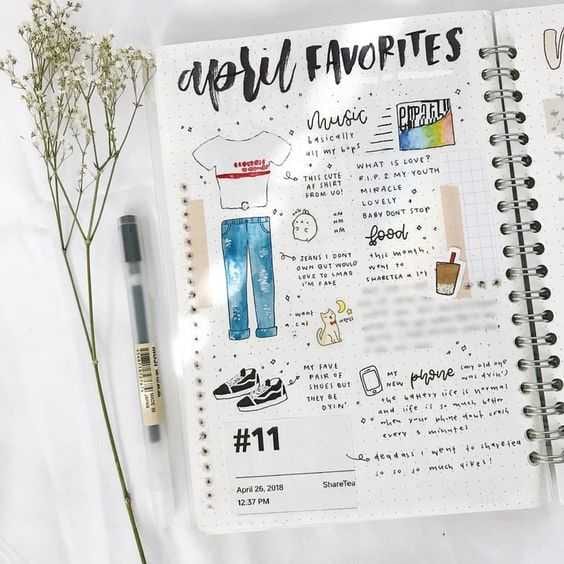 april FAVORITES
music
basically
all my bops
WHAT IS LOVE?
R.I.P. 2 MY YOUTH
MIRACLE
LOVELY
BABY DON'T STOP
THIS CUTE
AF SHIRT
FROM UO!
NM
NM
NM
JEANS I DON'T
OWN BUT WOULD
LOVE TO LMAO
I'M FAKE
want
a cat
food
this month, i
went to
SHARETEA A LOT
MY FAVE
PAIR OF
SHOES BUT
THEY BE
DYIN'
MY
NEW phone (my old one
was dyin')
the battery life is normal
and life is so much better
when your phone don't crash
every 5 minutes
deadass i went to sharetea
so so so much yikes!
#11
April 26, 2018 ShareTea
12:37 PM
MADE IN
JAPAN